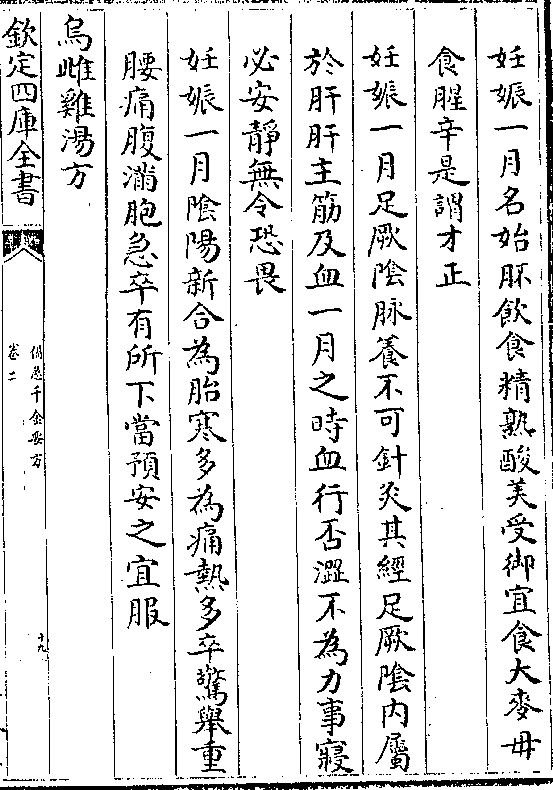 妊娠一月名始胚飲食精熟酸美受御宜食大麥毋
食腥辛是謂才正
妊娠一月足厥陰脉養不可針灸其經足厥陰内屬
於肝肝主筋及血一月之時血行否澀不為力事寢
必安靜無令恐畏
妊娠一月隂陽新合為胎寒多為痛熱多卒驚舉重
腰痛腹滿胞急卒有所下當預安之宜服
烏雌雞湯方
欽定四庫全書
備急千金要方
卷二
十九